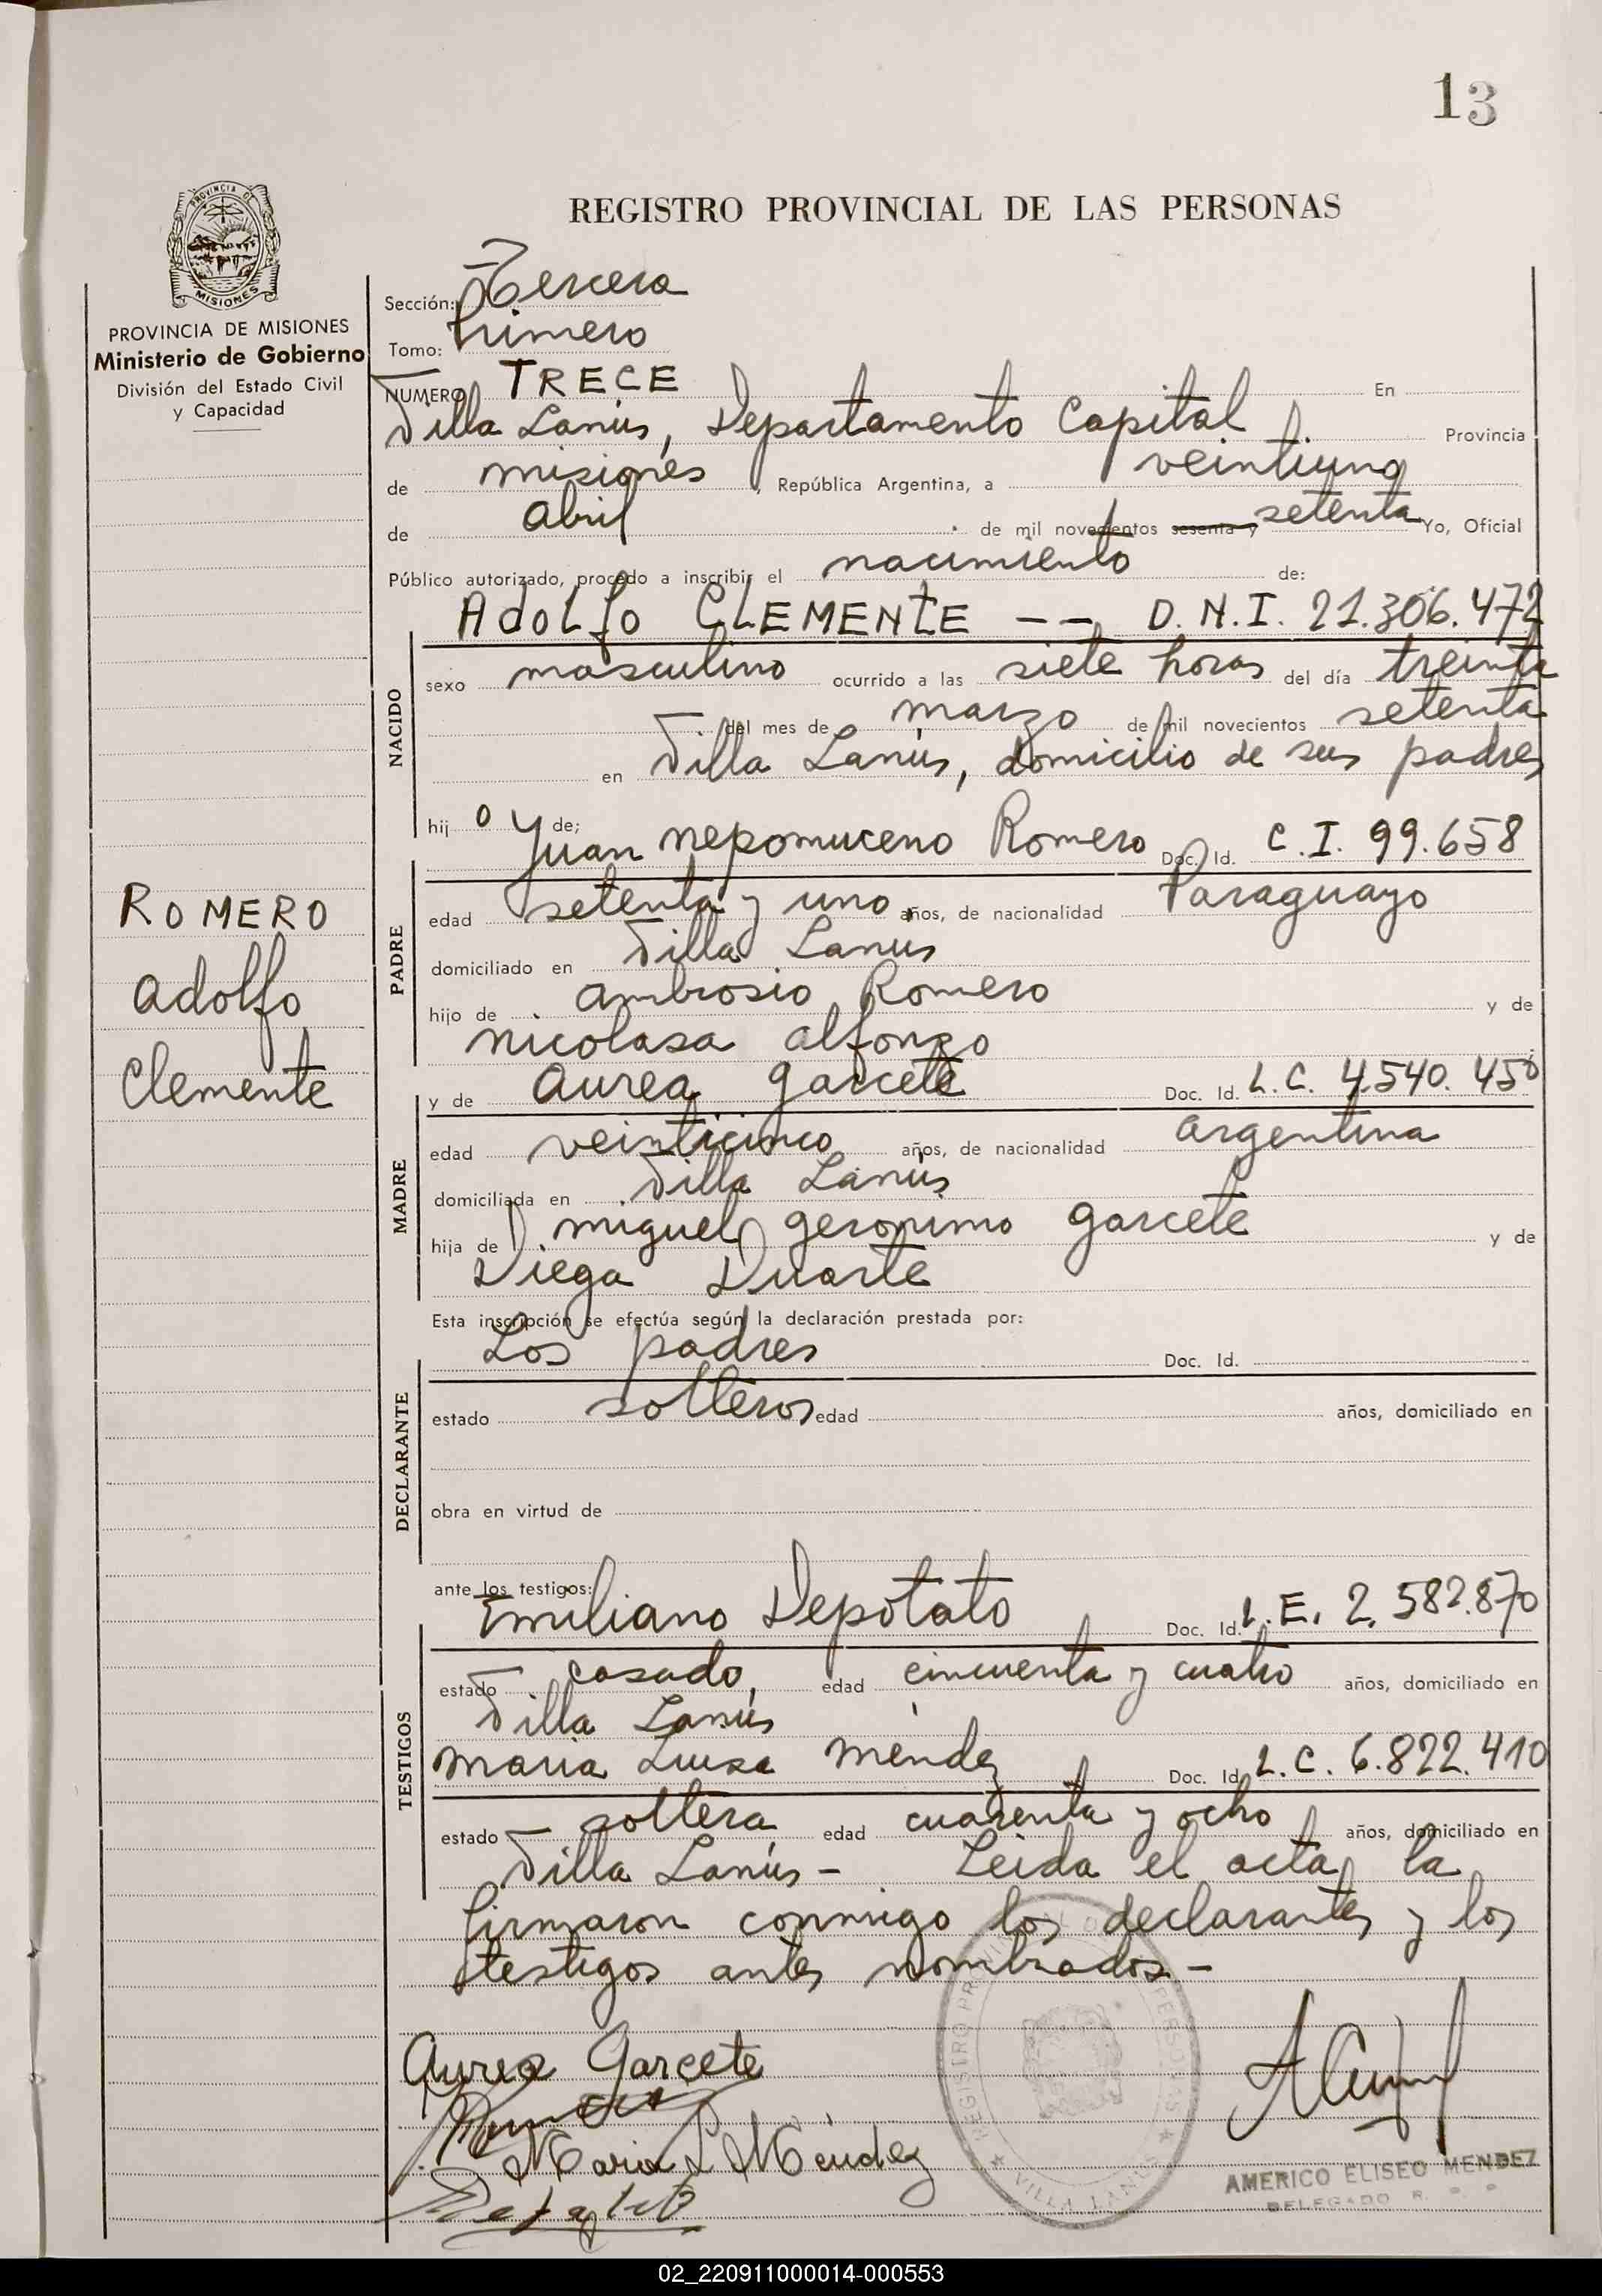 13
REGISTRO PROVINCIAL DE LAS PERSONAS
PROVINCIA DE MISIONES
Ministerio de Gobierno
División del Estado Civil
y Capacidad
ROMERO
Adolfo
Clemente
Sección: Tercera
Tomo: Primero
NUMERO TRECE En
Villa Lanús, Departamento Capital Provincia
de Misiones, República Argentina, a veintiuno
de Abril de mil novecientos sesenta y setenta Yo, Oficial
Público autorizado, procedo a inscribir el nacimiento de:
Adolfo CLEMENTE -- D.N.I. 21.306.472
NACIDO
sexo masculino ocurrido a las siete horas del día treinta
del mes de marzo de mil novecientos setenta
en Villa Lanús, domicilio de sus padres
hij o de;
Juan Nepomuceno Romero Doc. Id. C.I. 99.658
PADRE
edad setenta y uno años, de nacionalidad Paraguayo
domiciliado en Villa Lanus
hijo de Ambrosio Romero y de
Nicolasa Alfonzo
y de Aurea Garcete Doc. Id. L.C. 4.540.450
MADRE
edad veinticinco años, de nacionalidad Argentina
domiciliada en Villa Lanús
hija de Miguel Geronimo Garcete y de
Diega Duarte
Esta inscripción se efectúa según la declaración prestada por:
Los padres Doc. Id.
DECLARANTE
estado solteros edad años, domiciliado en
obra en virtud de
ante los testigos:
Emiliano Depotato Doc. Id. L.E. 2.582.870
TESTIGOS
estado casado, edad cincuenta y cuatro años, domiciliado en
Villa Lanús
Maria Luisa Mendez Doc. Id. L.C. 6.822.410
estado soltera edad cuarenta y ocho años, domiciliado en
Villa Lanús - Leida el acta, la
firmaron conmigo los declarantes y los
testigos antes nombrados -
Aurea Garcete
Maria L Méndez
REGISTRO PROVINCIAL DE LAS PERSONAS
VILLA LANUS
AMERICO ELISEO MENDEZ
DELEGADO R. P. P.
02_220911000014-000553